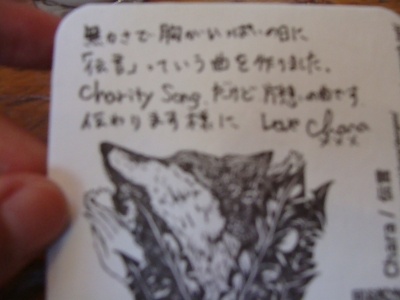 無力さで胸がいっぱいの日に
「伝言」っていう曲を作りました。
Charity Song だけど 片想いの曲です
伝わります様に Love Chara
xxx
Chara / 伝言